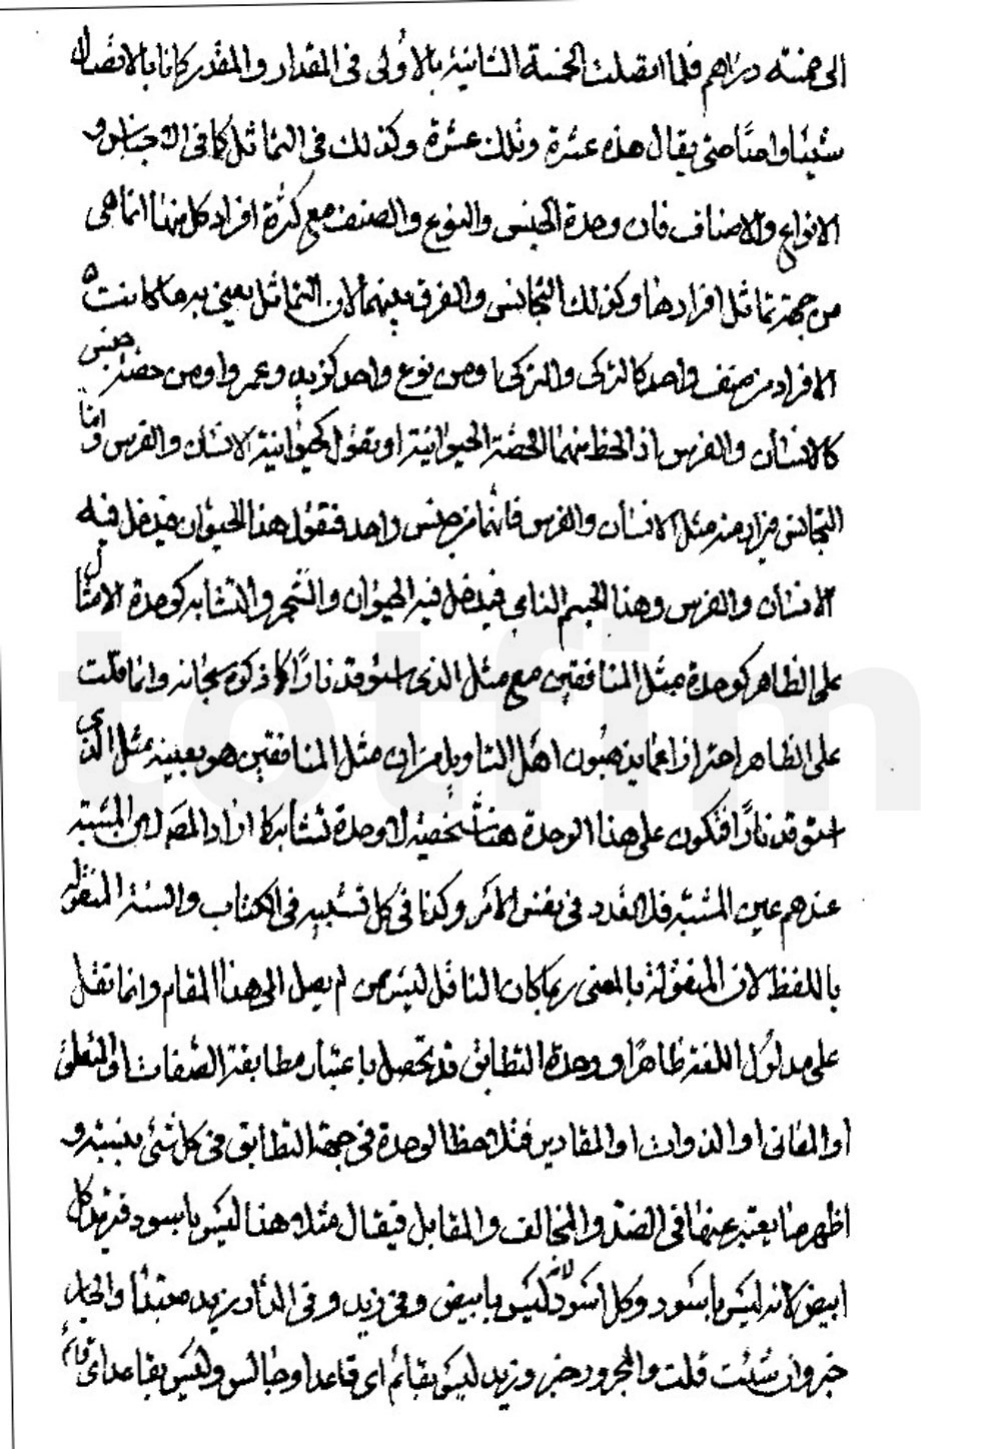 الى خمسة دراهم فلما اتصلت الخمسة الثانية بالأولى فى المقدار والمقدر كانا بالاتصال
شيئا واحدًا حتى يقال هذه عشرة وتلك عشرة وكذلك فى التماثل كما فى الاجناس و
الانواع والاصناف فان وحدة الجنس والنوع والصنف مع كثرة افراد كل منها انما هى
من جهة تماثل افرادها وكذلك التجانس والفرق بينهما لان التماثل يعنى به ما كانت
الافراد من صنف واحد كالتركى والتركى او من نوع واحد كزيد وعمرو او من حصة جنس
كالانسان والفرس اذ الحظ منهما الحصة الحيوانية او تقول كحيوانية الانسان والفرس وامّا
التجانس فيراد منه مثل الانسان والفرس فانّهما من جنس واحد فتقول هذا الحيوان فيدخل فيه
الانسان والفرس وهذا الجسم النامى فيدخل فيه الحيوان والشجر والتشابه كوحدة الامثال
على الظاهر كوحدة مثل المنافقين مع مثل الذى استوقد نارًا كما ذكره سبحانه وانما قلت
على الظاهر احترازا عما يذهبون اهل التاويل من ان مثل المنافقين هو بعينه مثل الذى
استوقد نارًا فتكون على هذا الوحدة هنا شخصية لا وحدة تشابه كما اراد المصـ لان المشبّه
عندهم عين المشبّه به فلا تعدد فى نفس الأمر وكذا فى كل تشبيه فى الكتاب والسنة المنقولة
باللفظ لان المنقولة بالمعنى ربما كان الناقل ليس ممن لم يصل الى هذا المقام وانما نقل
على مدلول اللغة ظاهرًا ووحدة التطابق قد تحصل باعتبار مطابقة الصّفات او التعلق
او المعانى او الذوات او المقادير فتلاحظ الوحدة فى جهة التطابق فى كل شئ بنسبته و
اظهر ما يعتبر عنها فى الضدّ والمخالف والمقابل فيقال مثلا هذا ليس باسود فتريد كل
ابيض لانه ليس بأسود وكل اسود لانه ليس بابيض وفى زيد وفى الدار زيد مبتدا والجار
خبر وان شئت قلت والمجرور خبر وزيد ليس بقائم اى قاعدا وجالس وليس بقاعد اى قائم